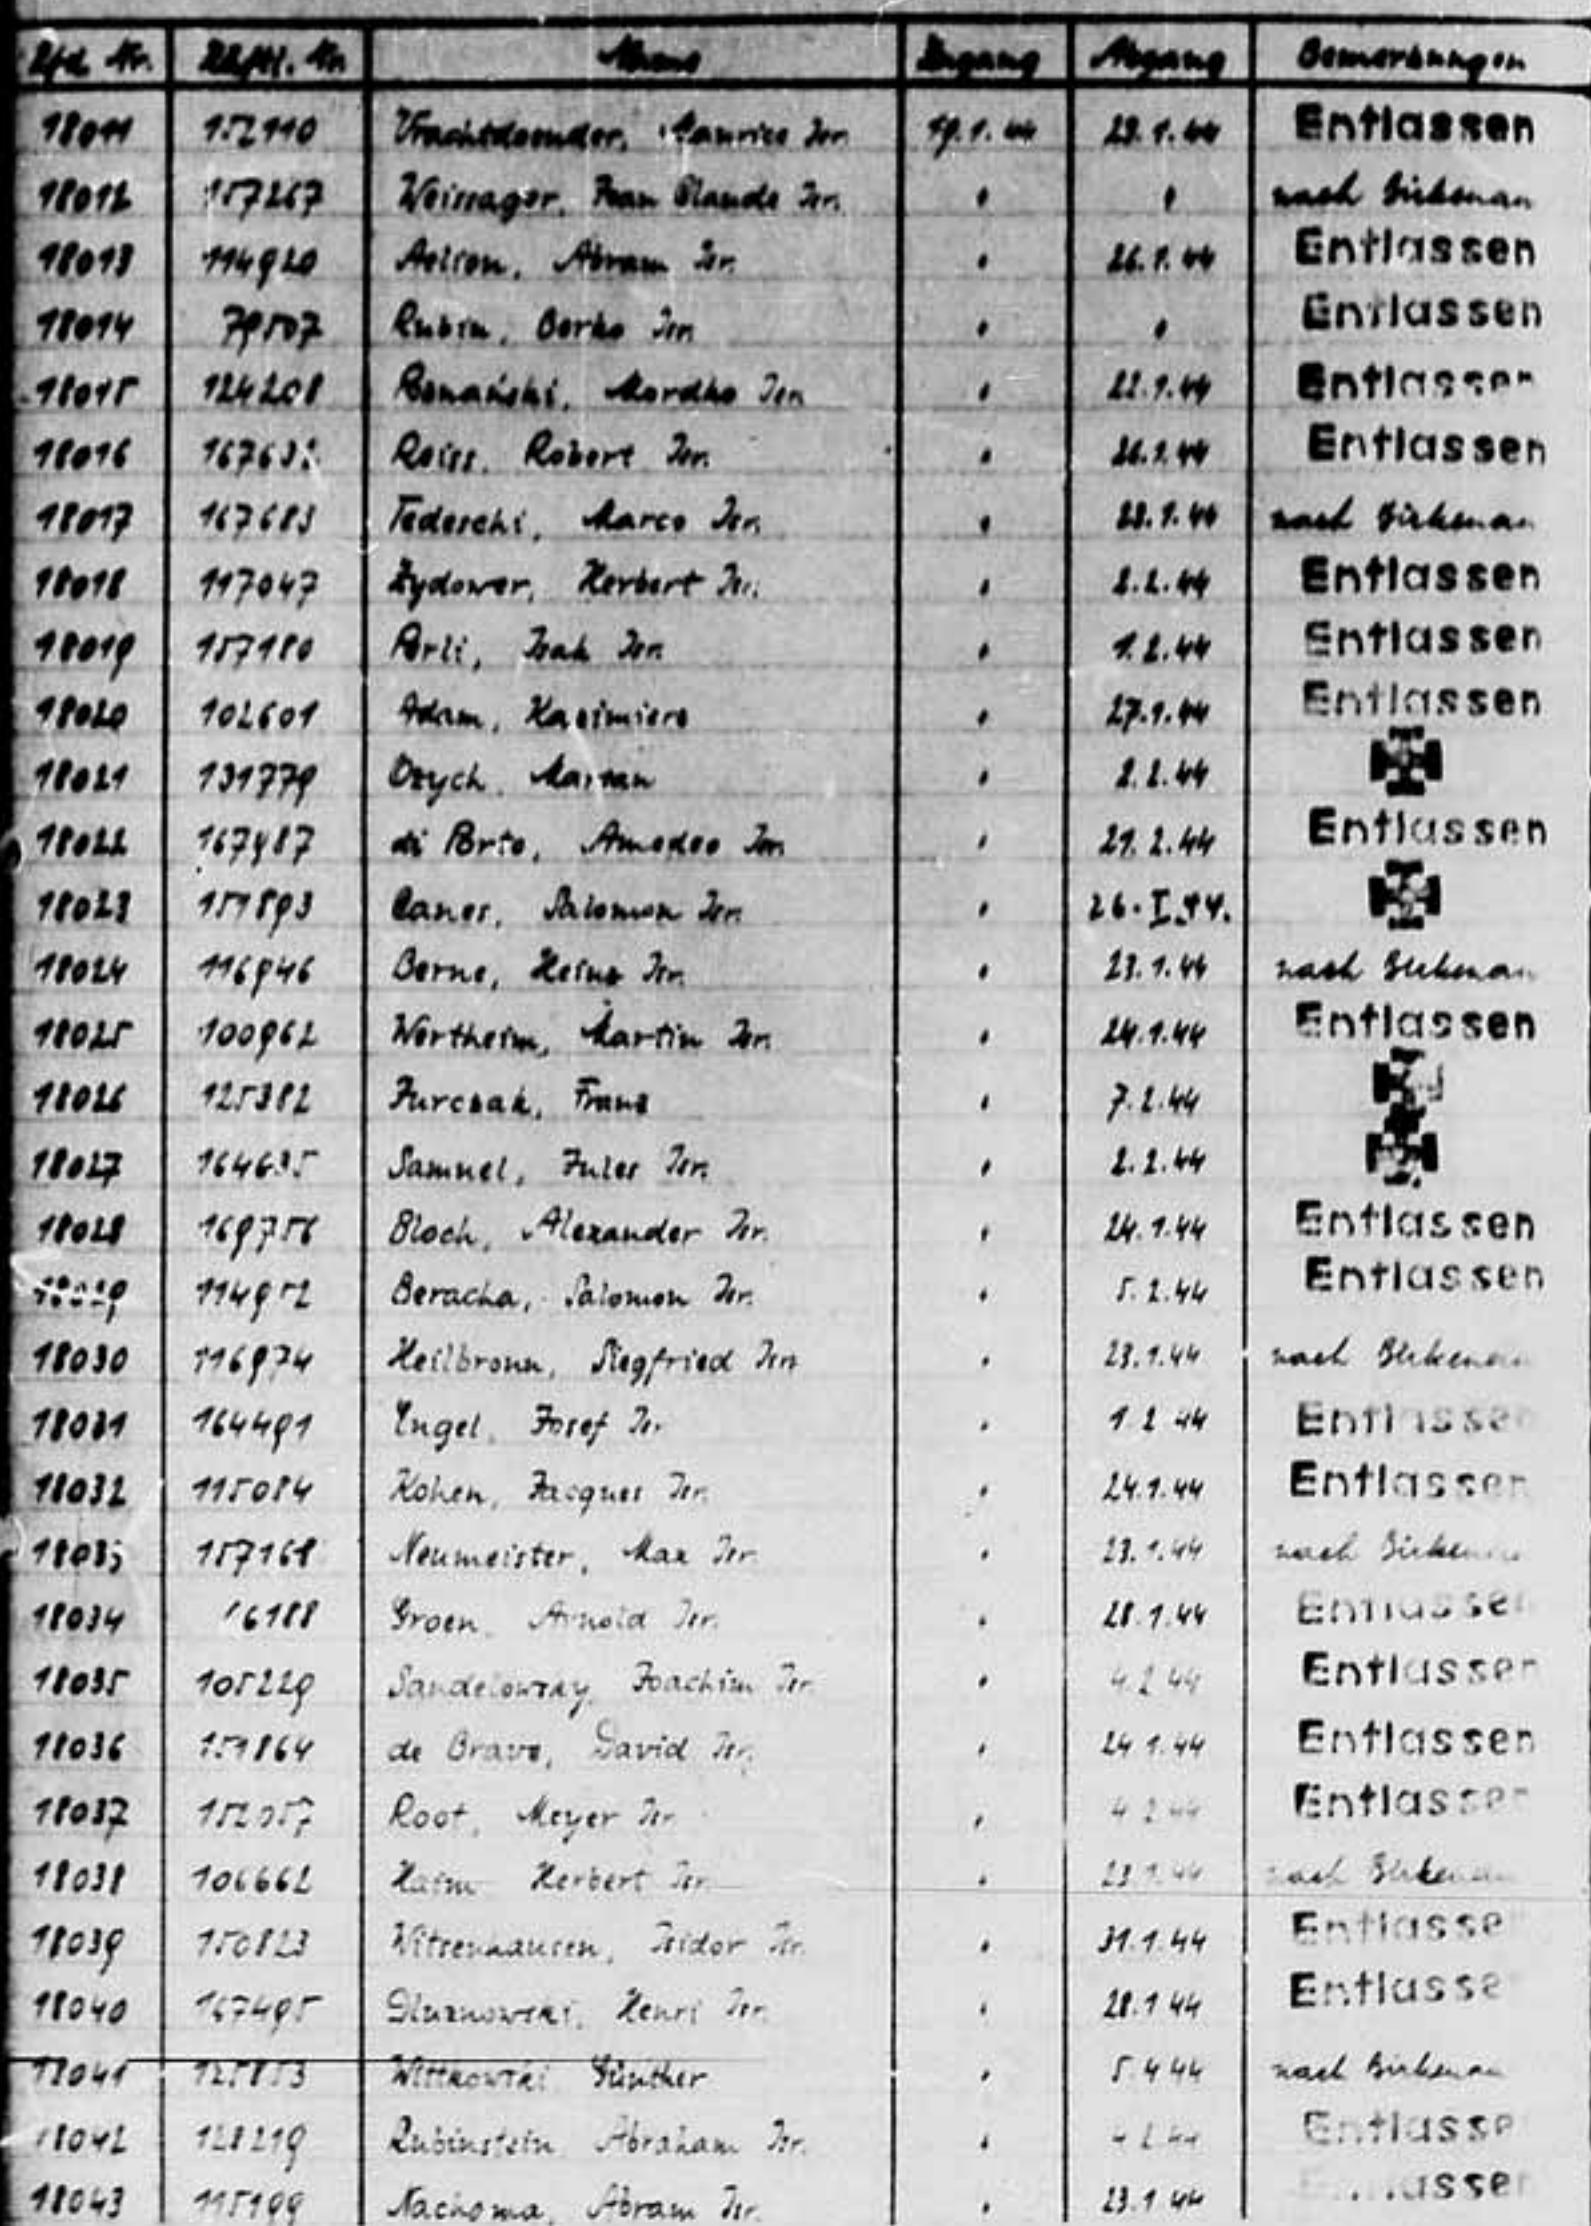 Lfd. Nr. Häftl. Nr. Name Zugang Abgang Bemerkungen
18011 152110 Vrachtdoender, Maurice Isr. 19.1.44 23.1.44 Entlassen
18012 157267 Weissager, Jean Claude Isr. " " nach Birkenau
18013 114920 Aelion, Abram Isr. " 26.1.44 Entlassen
18014 79507 Rubin, Berko Isr. " " Entlassen
18015 124208 Mordko Isr. " 22.1.44 Entlassen
18016 Reiss, Robert Isr. " 26.1.44 Entlassen
18017 167683 Tedeschi, Marco Isr. " 23.1.44 nach Birkenau
18018 117047 Zydower, Herbert Isr. " 2.2.44 Entlassen
18019 157180 Isak Isr. " 1.2.44 Entlassen
18020 102601 Adam, Kazimierz " 27.1.44 Entlassen
18021 131779 Ozych, Marian " 2.2.44
18022 167487 di Porto, Amedeo Isr. " 21.2.44 Entlassen
18023 151893 Canes, Salomon Isr. " 26.I.44.
18024 116946 Berne, Heinz Isr. " 23.1.44 nach Birkenau
18025 100962 Wertheim, Martin Isr. " 24.1.44 Entlassen
18026 125382 Jurczak, Franz " 7.2.44
18027 164635 Samuel, Jules Isr. " 2.2.44
18028 169756 Bloch, Alexander Isr. " 24.1.44 Entlassen
18029 114952 Beracha, Salomon Isr. " 5.2.44 Entlassen
18030 116974 Heilbronn, Siegfried Isr. " 23.1.44 nach Birkenau
18031 164491 Engel, Josef Isr. " 1.2.44 Entlassen
18032 115084 Kohen, Jacques Isr. " 24.1.44 Entlassen
18033 157168 Neumeister, Max Isr. " 23.1.44 nach Birkenau
18034 Groen, Arnold Isr. " 28.1.44 Entlassen
18035 105229 Sandelowsky, Joachim Isr. " 4.2.44 Entlassen
18036 151864 de Bravo, David Isr. " 24.1.44 Entlassen
18037 Root, Meyer Isr. " 4.2.44 Entlassen
18038 106662 Haim Herbert Isr. " 23.1.44 nach Birkenau
18039 150823 Witzenhausen, Isidor Isr. " 31.1.44 Entlassen
18040 167495 Gluznowski, Henri Isr. " 28.1.44 Entlassen
18041 125853 Wittkowski Günther " 5.4.44 nach Birkenau
18042 128219 Rubinstein, Abraham Isr. " 4.2.44 Entlassen
18043 115199 Nachoma, Abram Isr. " 23.1.44 Entlassen